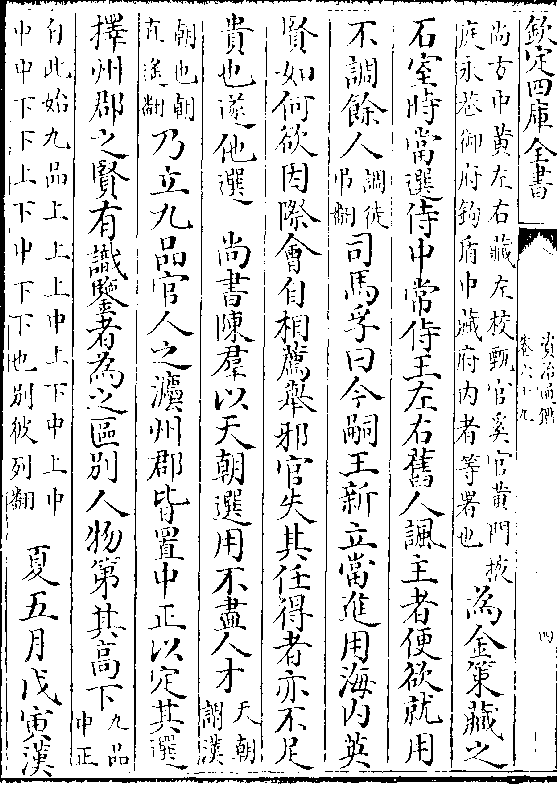 欽定四庫全書
資治通鑑
卷六十九
四
尚方中黄左右藏左校甄官奚官黄門掖
庭永巷御府鉤盾中藏府内者等署也
為金策藏之
石室時當選侍中常侍王左右舊人諷主者便欲就用
不調餘人調徒
弔翻
司馬孚曰今嗣王新立當進用海内英
賢如何欲因際會自相薦舉邪官失其任得者亦不足
貴也遂他選　尚書陳羣以天朝選用不盡人才天朝
謂漢
朝也朝
直遥翻
乃立九品官人之灋州郡皆置中正以定其選
擇州郡之賢有識鑒者為之區别人物第其高下九品
中正
自此始九品上上上中上下中上中
中中下下上下中下下也别彼列翻
夏五月戊寅漢